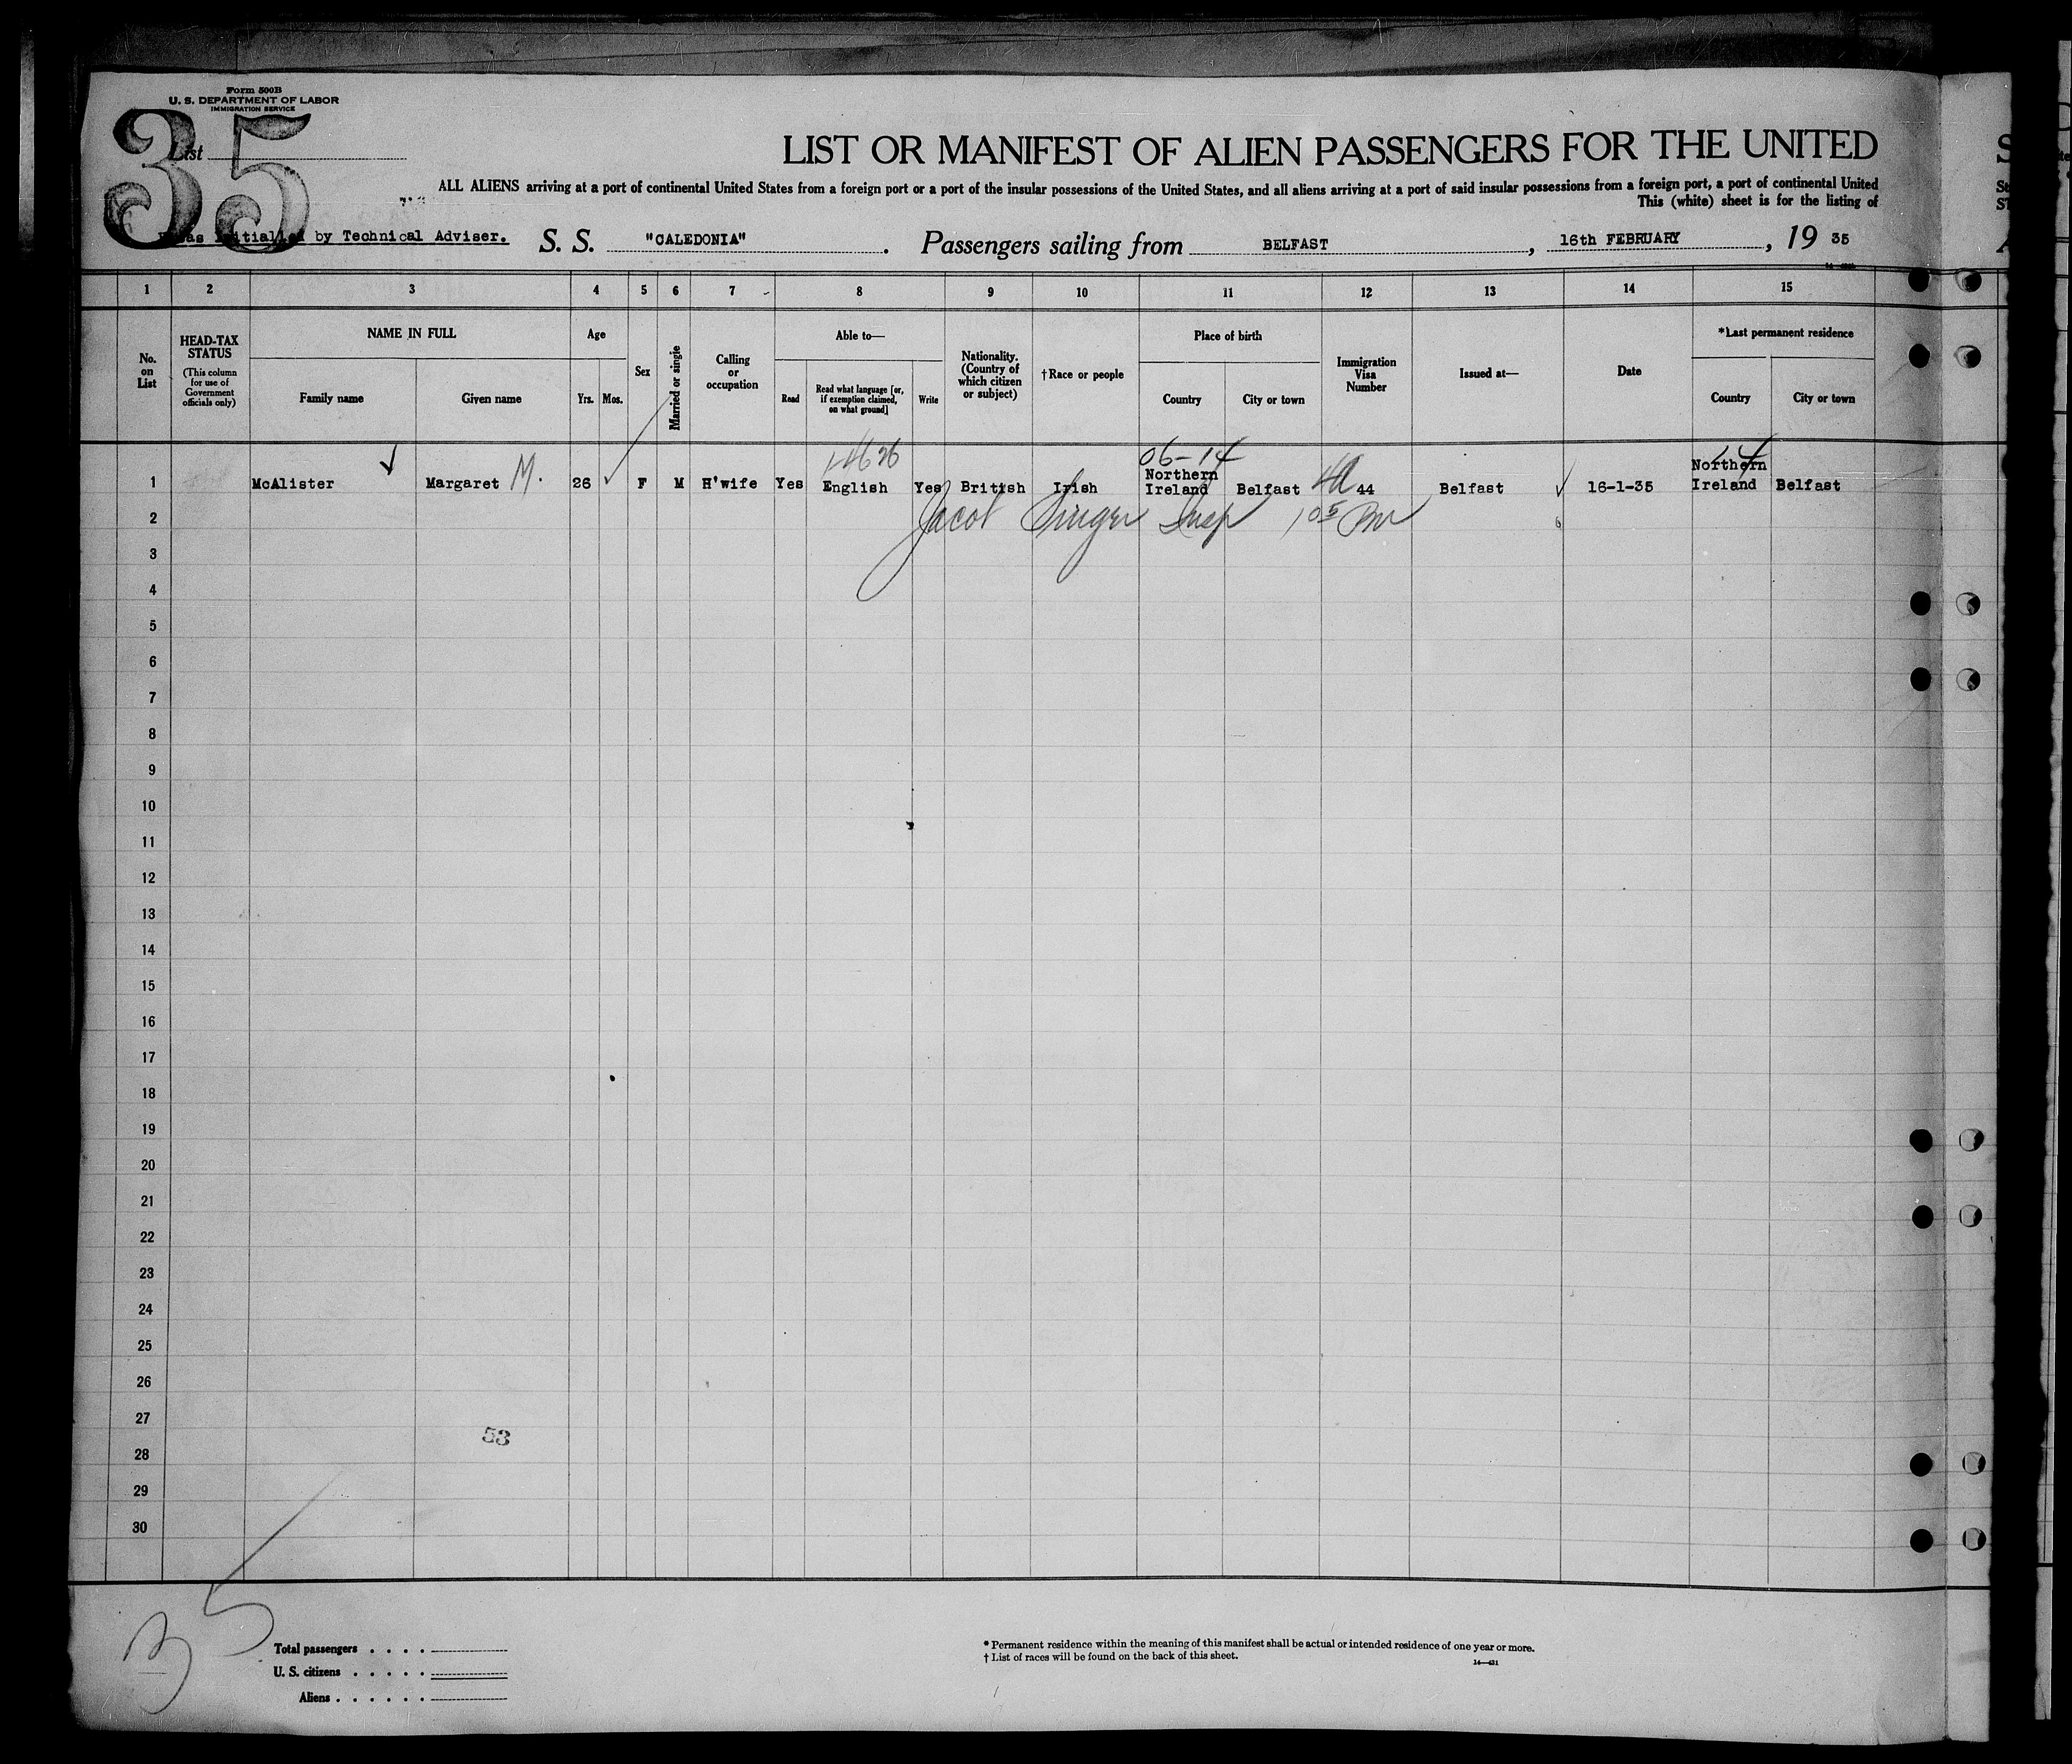 Form 500B
U. S. DEPARTMENT OF LABOR
IMMIGRATION SERVICE
35
List
LIST OR MANIFEST OF ALIEN PASSENGERS FOR THE UNITED
ALL ALIENS arriving at a port of continental United States from a foreign port or a port of the insular possessions of the United States, and all aliens arriving at a port of said insular possessions from a foreign port, a port of continental United
This (white) sheet is for the listing of
Initialled by Technical Adviser.
S. S. "CALEDONIA". Passengers sailing from BELFAST, 16th FEBRUARY, 19 35
1 2 3 4 5 6 7 8 9 10 11 12 13 14 15
No. on List
HEAD-TAX STATUS (This column for use of Government officials only)
NAME IN FULL
Family name Given name
Age
Yrs. Mos.
Sex
Married or single
Calling or occupation
Able to—
Read Read what language [or, if exemption claimed, on what ground] Write
Nationality. (Country of which citizen or subject)
†Race or people
Place of birth
Country City or town
Immigration Visa Number
Issued at—
Date
*Last permanent residence
Country City or town
06-14
1 McAlister Margaret M. 26 F M H'wife Yes English Yes British Irish Northern Ireland Belfast 44 Belfast 16-1-35 Northern Ireland Belfast
Jacob Singer Insp 10 5 PM
2
3
4
5
6
7
8
9
10
11
12
13
14
15
16
17
18
19
20
21
22
23
24
25
26
27
53
28
29
30
Total passengers
U. S. citizens
Aliens
* Permanent residence within the meaning of this manifest shall be actual or intended residence of one year or more.
† List of races will be found on the back of this sheet.